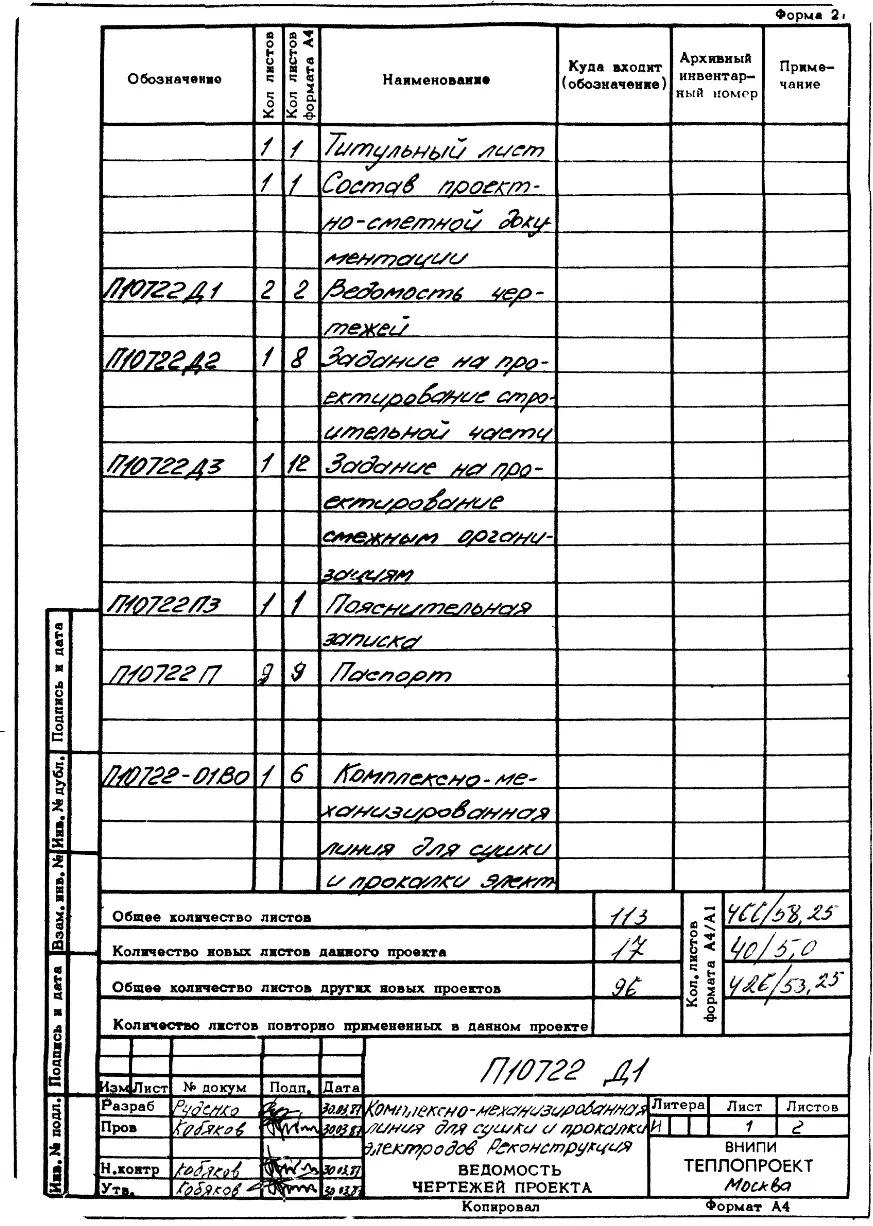 Форма 2
Обозначение
Кол листов
Кол листов формата А4
Наименование
Куда входит (обозначение)
Архивный инвентар- ный номер
Приме- чание
1 1 Титульный лист
1 1 Состав проект-
но-сметной доку-
ментации
П10722Д1 2 2 Ведомость чер-
тежей
П10722Д2 1 8 Задание на про-
ектирование стро-
ительной части
П10722Д3 1 12 Задание на про-
ектирование
смежным органи-
зациям
П10722ПЗ 1 1 Пояснительная
записка
П10722 П 9 9 Паспорт
П10722-01ВО 1 6 Комплексно-ме-
ханизированная
линия для сушки
и прокалки элект
Общее количество листов 113
Количество новых листов данного проекта 17
Общее количество листов других новых проектов 96
Количество листов повторно примененных в данном проекте
Кол. листов формата А4/А1
466/58,25
40/5,0
426/53,25
Инв. № подл.
Подпись и дата
Взам. инв. №
Инв. № дубл.
Подпись и дата
П10722 Д1
Изм Лист № докум Подп. Дата
Разраб Руденко 30.03.87
Пров Кобяков 30.03.87
Н.контр Кобяков 30.03.87
Утв. Кобяков 30.03.87
Комплексно-механизированная
линия для сушки и прокалки
электродов Реконструкция
ВЕДОМОСТЬ
ЧЕРТЕЖЕЙ ПРОЕКТА
Литера Лист Листов
И 1 2
ВНИПИ
ТЕПЛОПРОЕКТ
Москва
Копировал Формат А4